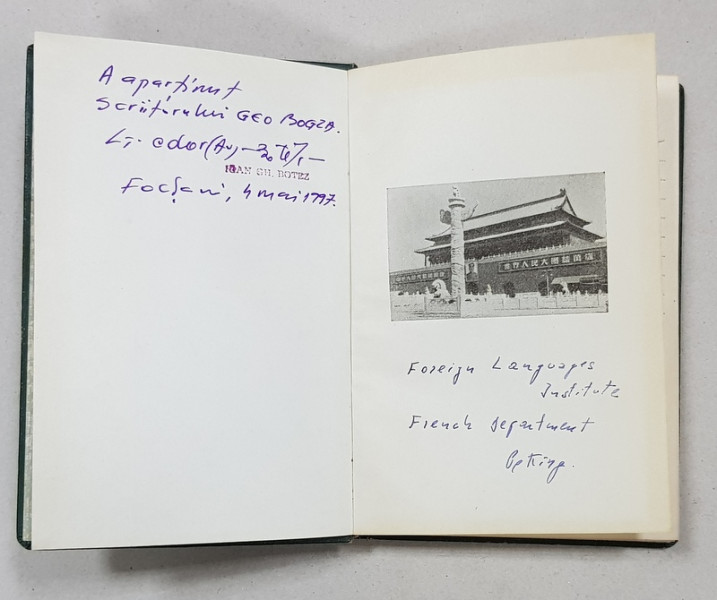 A aparținut
Scriitorului GEO BOGZA.
IOAN GH. BOTEZ
Focșani, 4 mai 1997.
世界人民大團結萬歲
Foreign Languages
Institute
French Department
Peking.